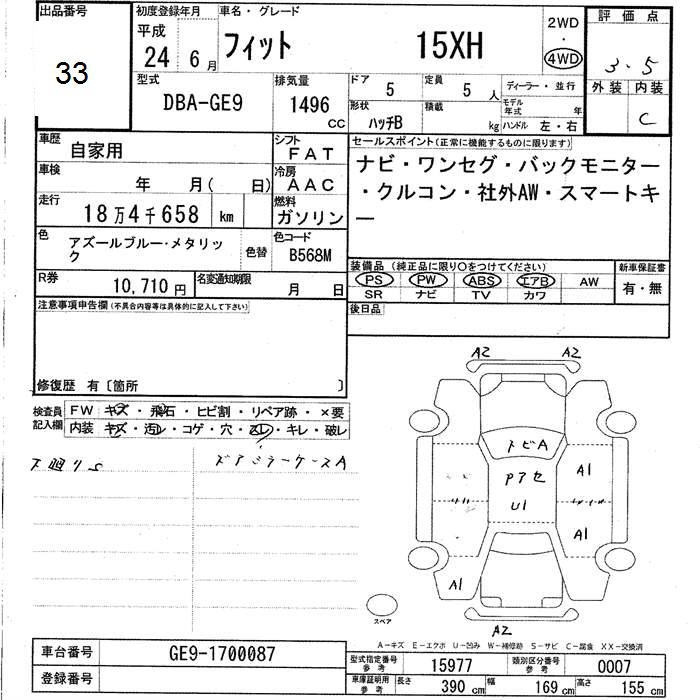 出品番号
33
初度登録年月
平成
24 6月
車名・グレード
フィット 15XH
2WD
・
4WD
評価点
3.5
外装 内装
C
型式
DBA-GE9
排気量
1496
CC
ドア 5
定員 5 人
形状 ハッチB
積載 kg
ディーラー・並行
モデル年式 年
ハンドル 左・右
車歴 自家用
シフト FAT
車検 年 月( 日)
冷房 AAC
走行 18万4千658 km
燃料 ガソリン
セールスポイント(正常に機能するものに限ります)
ナビ・ワンセグ・バックモニター
・クルコン・社外AW・スマートキ
ー
色 アズールブルー・メタリック
色替
色コード B568M
R券 10,710円
名変通知期限 月 日
装備品(純正品に限り○をつけてください)
PS PW ABS エアB AW
SR ナビ TV カワ
新車保証書
有・無
後日品
注意事項申告欄(不具合内容等は具体的に記入して下さい)
修復歴 有〔箇所 〕
検査員記入欄
FW キズ・飛石・ヒビ割・リペア跡・×要
内装 キズ・汚レ・コゲ・穴・スレ・キレ・破レ
下廻りS
ドアミラーケースA
A2 A2
トビA
Pアセ
U1
A1
A1
A1
A2
スペア
A-キズ E-エクボ U-凹み W-補修跡 S-サビ C-腐食 XX-交換済
車台番号 GE9-1700087
登録番号
型式指定番号 参考 15977
類別区分番号 参考 0007
車庫証明用 参考
長さ 390 cm
幅 169 cm
高さ 155 cm